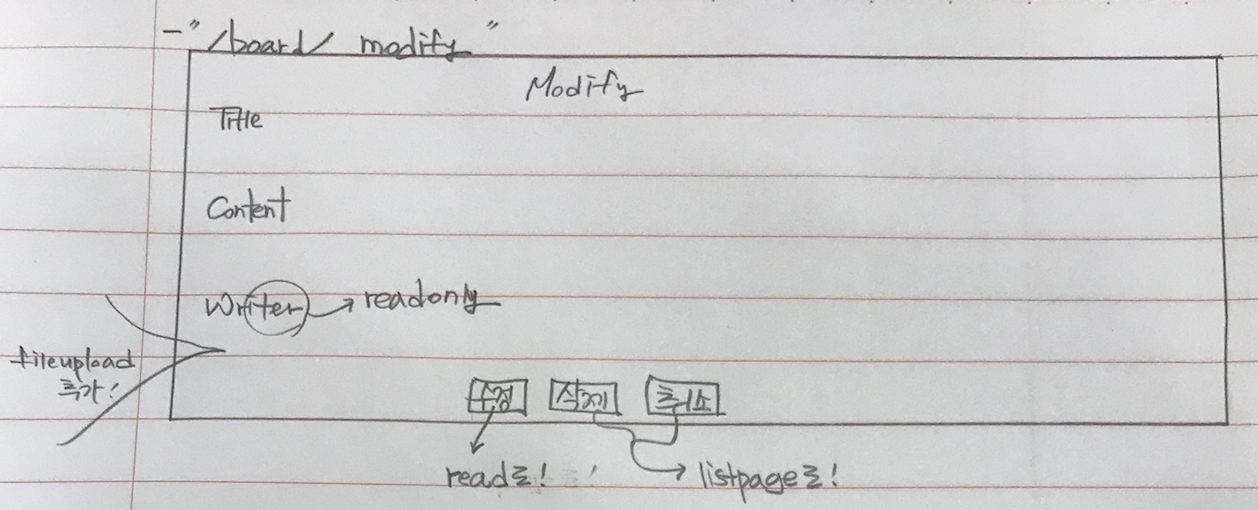 - "/board/ modify"
Modify
Title
Content
Writer → readonly
fileupload
추가!
수정 삭제 취소
read로!
listpage로!